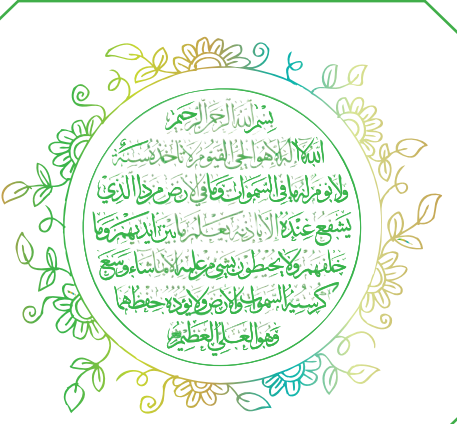 بسم الله الرحمن الرحيم
الله لا إله إلا هو الحي القيوم لا تأخذه سنة
ولا نوم له ما في السموات وما في الأرض من ذا الذي
يشفع عنده إلا بإذنه يعلم ما بين أيديهم وما
خلفهم ولا يحيطون بشيء من علمه إلا بما شاء وسع
كرسيه السموات والأرض ولا يؤده حفظهما
وهو العلي العظيم